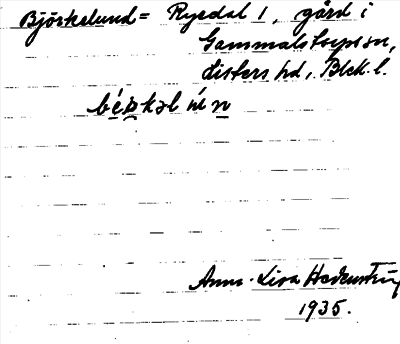 Björkelund = Ryedal 1, gård i
Gammalstorps sn,
Listers hd, Blek. l.
Anna-Lisa Hedenström
1935.